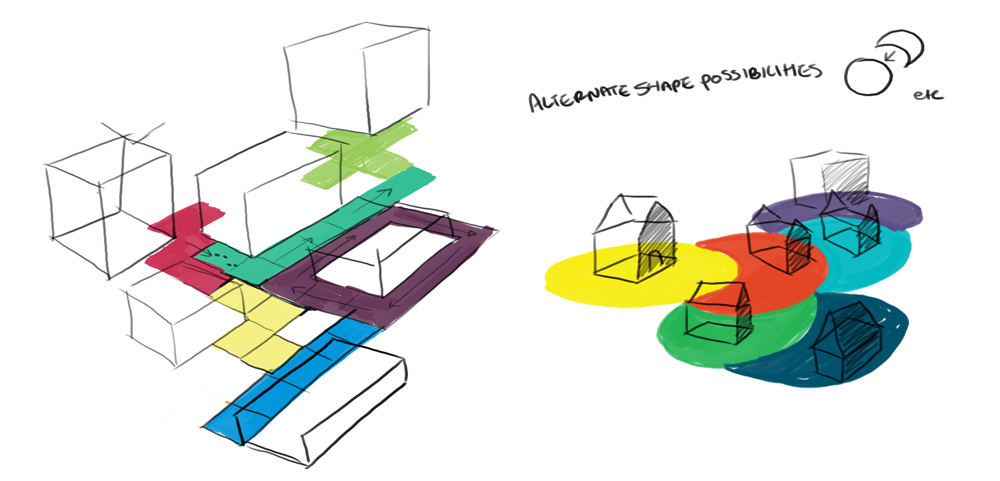 ALTERNATE SHAPE POSSIBILITIES
etc